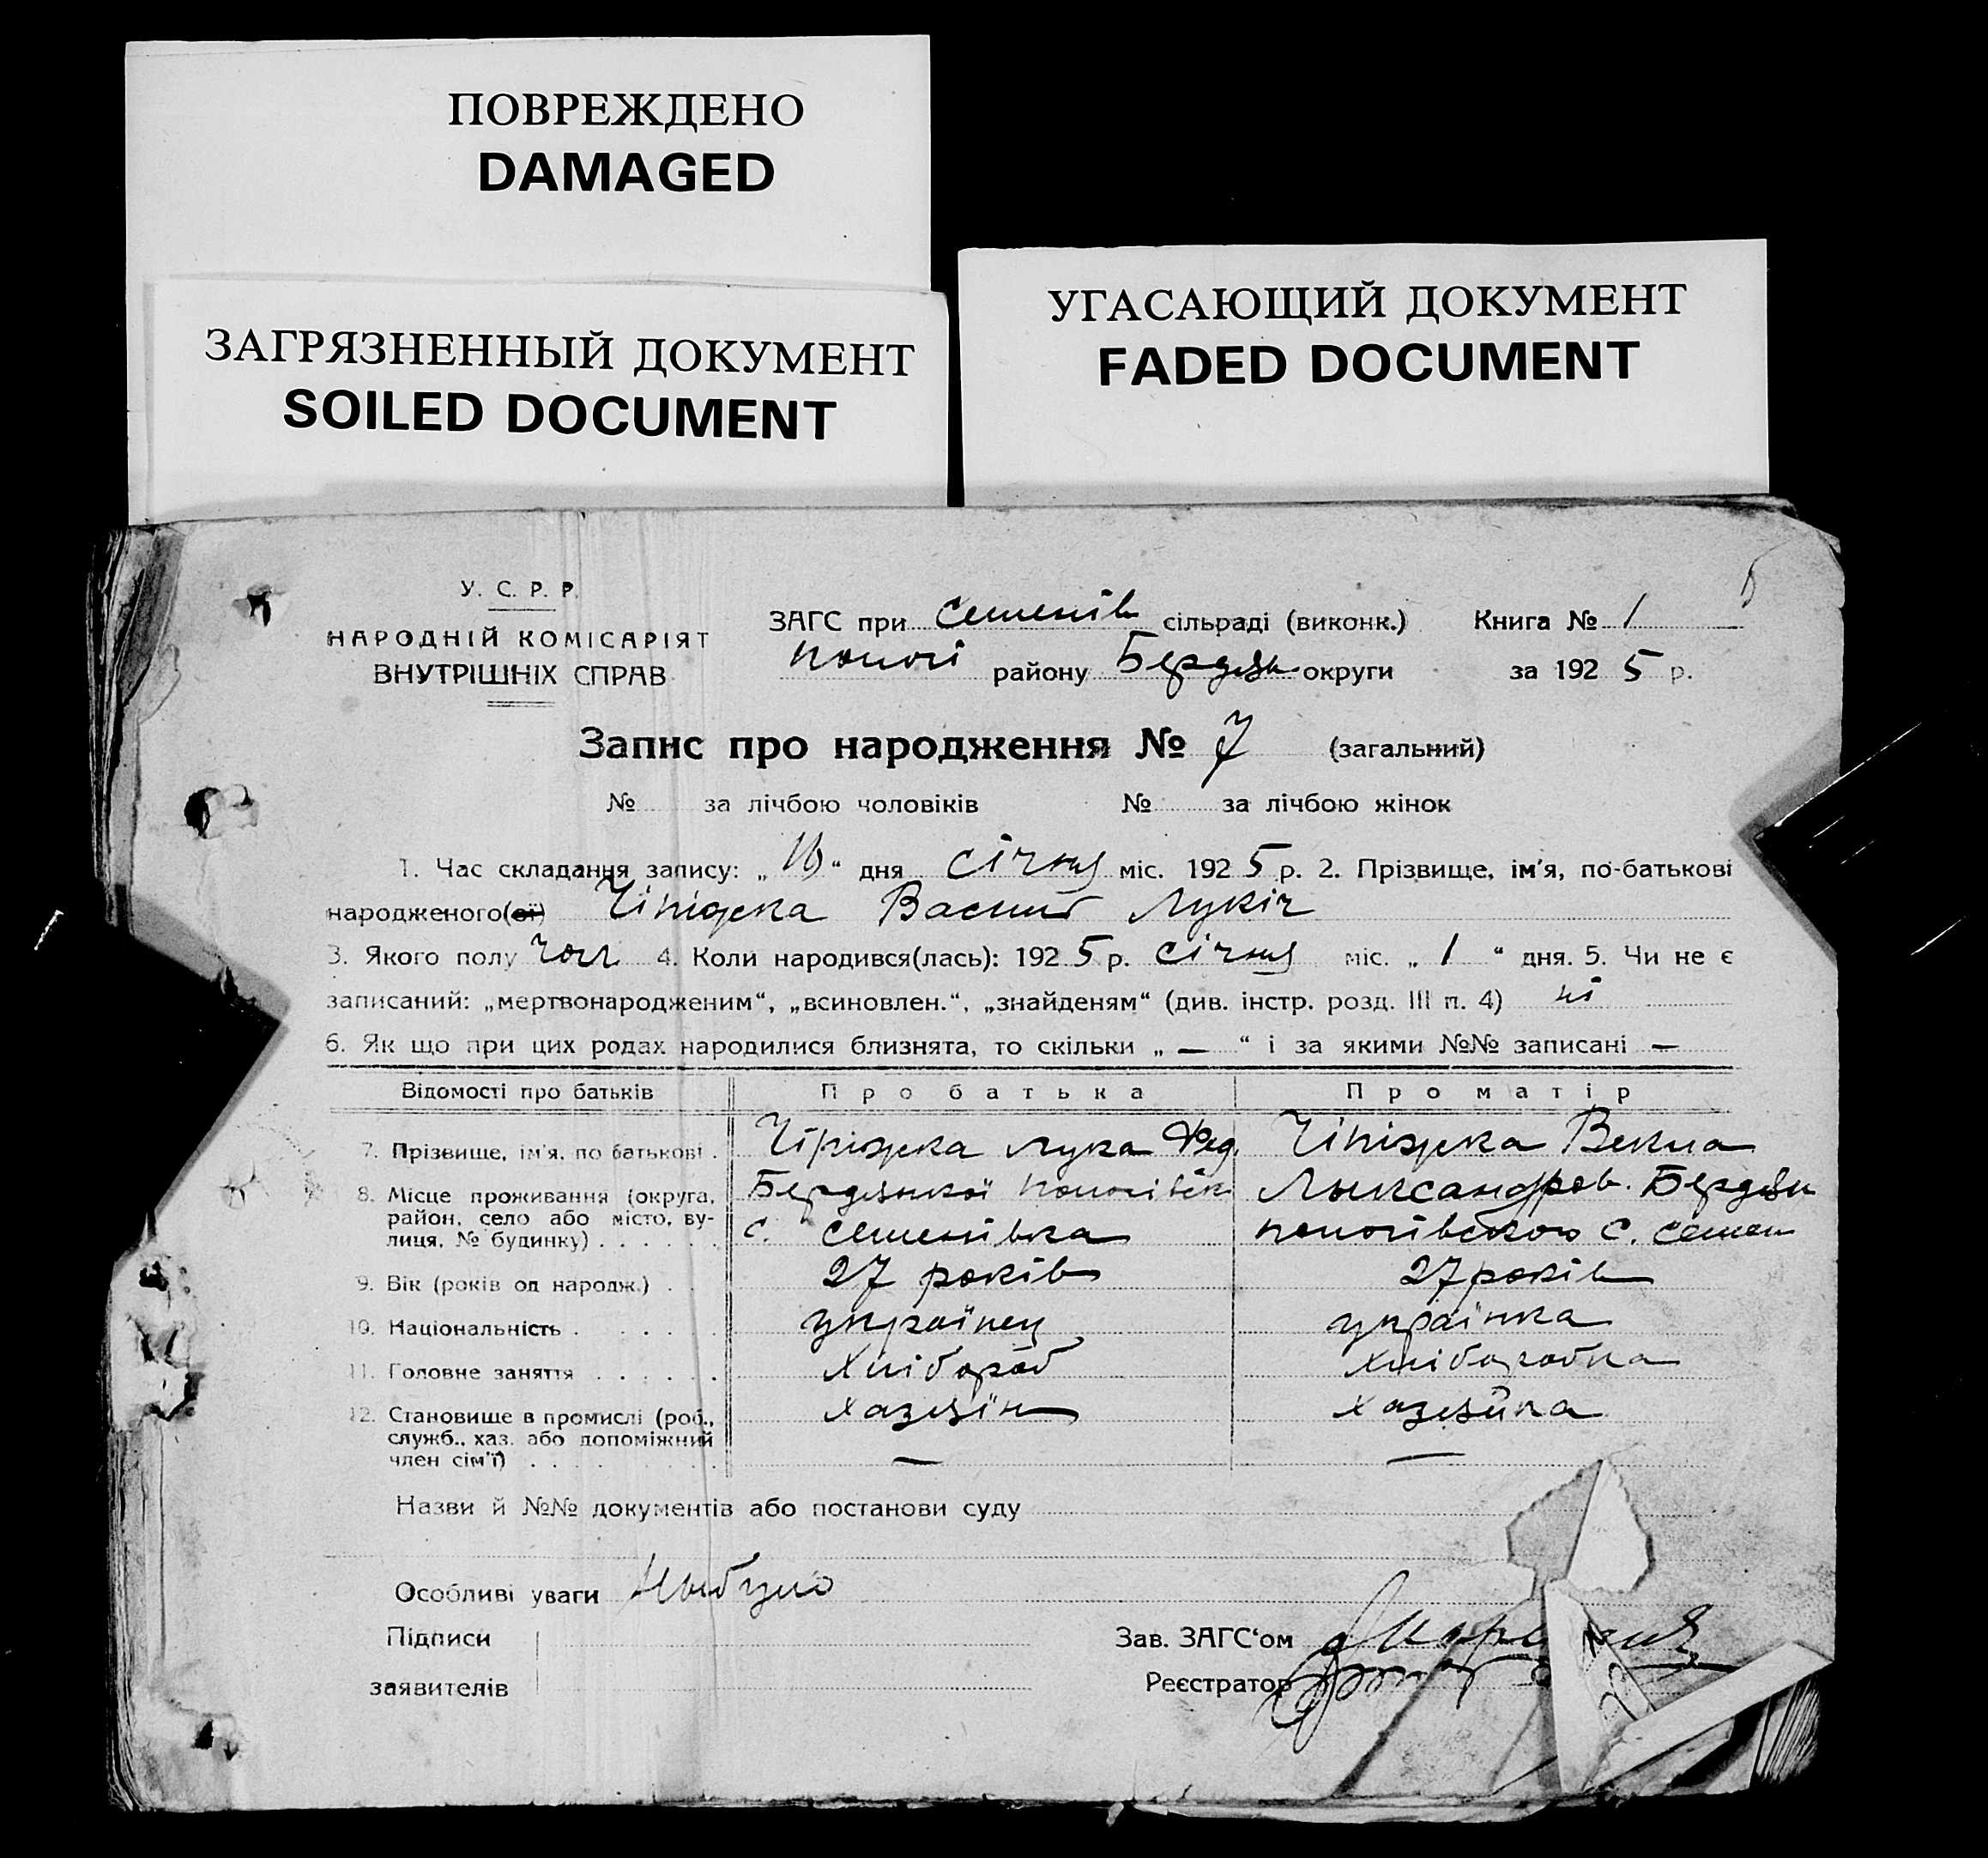 ПОВРЕЖДЕНО
DAMAGED
ЗАГРЯЗНЕННЫЙ ДОКУМЕНТ
SOILED DOCUMENT
УГАСАЮЩИЙ ДОКУМЕНТ
FADED DOCUMENT
У. С. Р. Р.
НАРОДНІЙ КОМІСАРІЯТ
ВНУТРІШНІХ СПРАВ
ЗАГС при Семенів сільраді (виконк.) Книга № 1
району Бердян округи за 192 5 р.
Запис про народження № 7 (загальний)
№ за лічбою чоловіків № за лічбою жінок
1. Час складання запису: „ “ дня січня міс. 192 5 р. 2. Прізвище, ім'я, по-батькові
народженого(ої) Василь Лукіч
3. Якого полу чол 4. Коли народився(лась): 192 5 р. січня міс. „ 1 “ дня. 5. Чи не є
записаний: „мертвонародженим“, „всиновлен.“, „знайденям“ (див. інстр. розд. III п. 4) ні
6. Як що при цих родах народилися близнята, то скільки „ — “ і за якими №№ записані —
Відомості про батьків Про батька Про матір
7. Прізвище, ім'я, по батькові . Лука Фед. Чіпіджка Векла
8. Місце проживання (округа, район, село або місто, вулиця, № будинку) . . . . . .
Бердянської
с. Семенівка
Бердян
с. Семен
9. Вік (років од народж.) . . 27 років 27 років
10. Національність . . . . . . українец українка
11. Головне заняття . . . . . . Хлібороб Хліборобка
12. Становище в промислі (роб., служб., хаз. або допоміжний член сім'ї) . . . . . . .
хазяїн хазяйка
— —
Назви й №№ документів або постанови суду
Особливі уваги
Підписи
заявителів
Зав. ЗАГС‘ом
Реєстратор